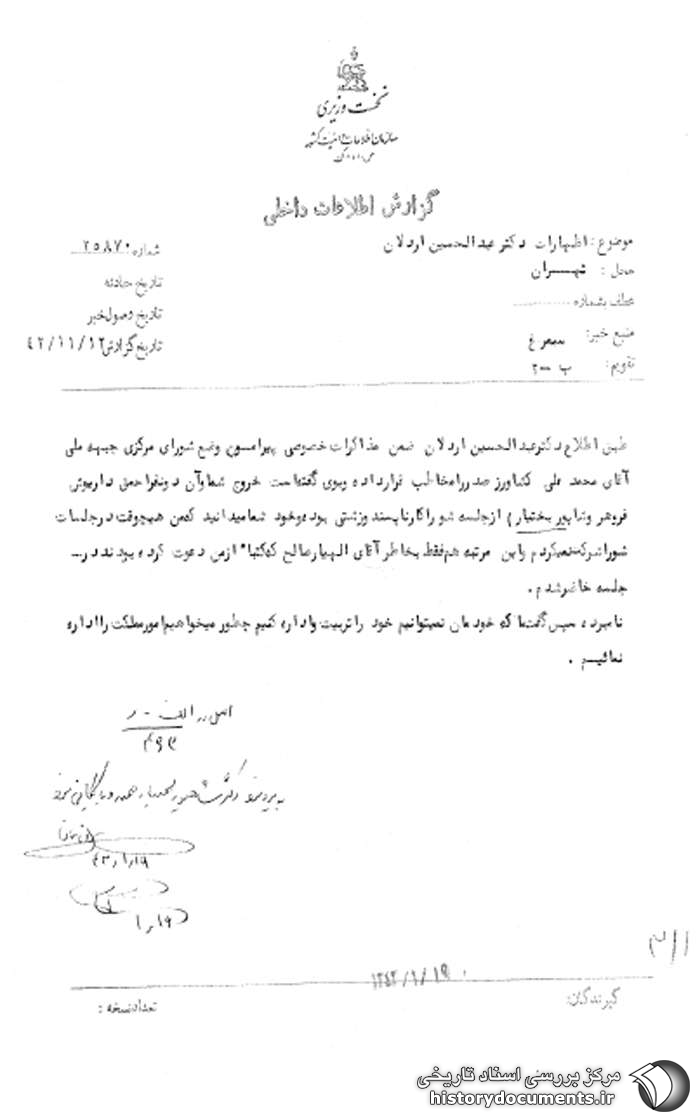 نخست وزیری
سازمان اطلاعات و امنیت کشور
گزارش اطلاعات داخلی
موضوع : اظهارات دکتر عبدالحسین اردلان
شماره ۲۵۸۷۰
محل : تهران
تاریخ حادثه
عطف بشماره
تاریخ وصول خبر
منبع خبر:
تاریخ گزارش ۴۲/۱۱/۱۲
تقویم: ب
طبق اطلاع دکتر عبدالحسین اردلان ضمن مذاکرات خصوصی پیرامون وضع شورای مرکزی جبهه ملی
آقای محمد علی کشاورز صدر را مخاطب قرار داده و بوی گفته است خروج شما و آن دو نفر احمق داریوش
فروهر و شاپور بختیار ) از جلسه شورا کار ناپسند و زشتی بوده و خود شما میدانید که من هیچوقت در جلسات
شورا شرکت نمیکردم و این مرتبه هم فقط بخاطر آقای الهیار صالح که کتبا" از من دعوت کرده بودند در...
جلسه حاضر شدم .
نامبرده سپس گفت ما که خودمان نمیتوانیم خود را تربیت و اداره کنیم چطور میخواهیم امور مملکت را اداره
نمائیم .
اصل در الف - د
۴۹۳
۴۳/۱/۱۹
۱/۱۹
۳۱۱
۱۳۴۳/۱/۱۹
گیرندگان:
تعداد نسخه :
مرکز بررسی اسناد تاریخی
historydocuments.ir